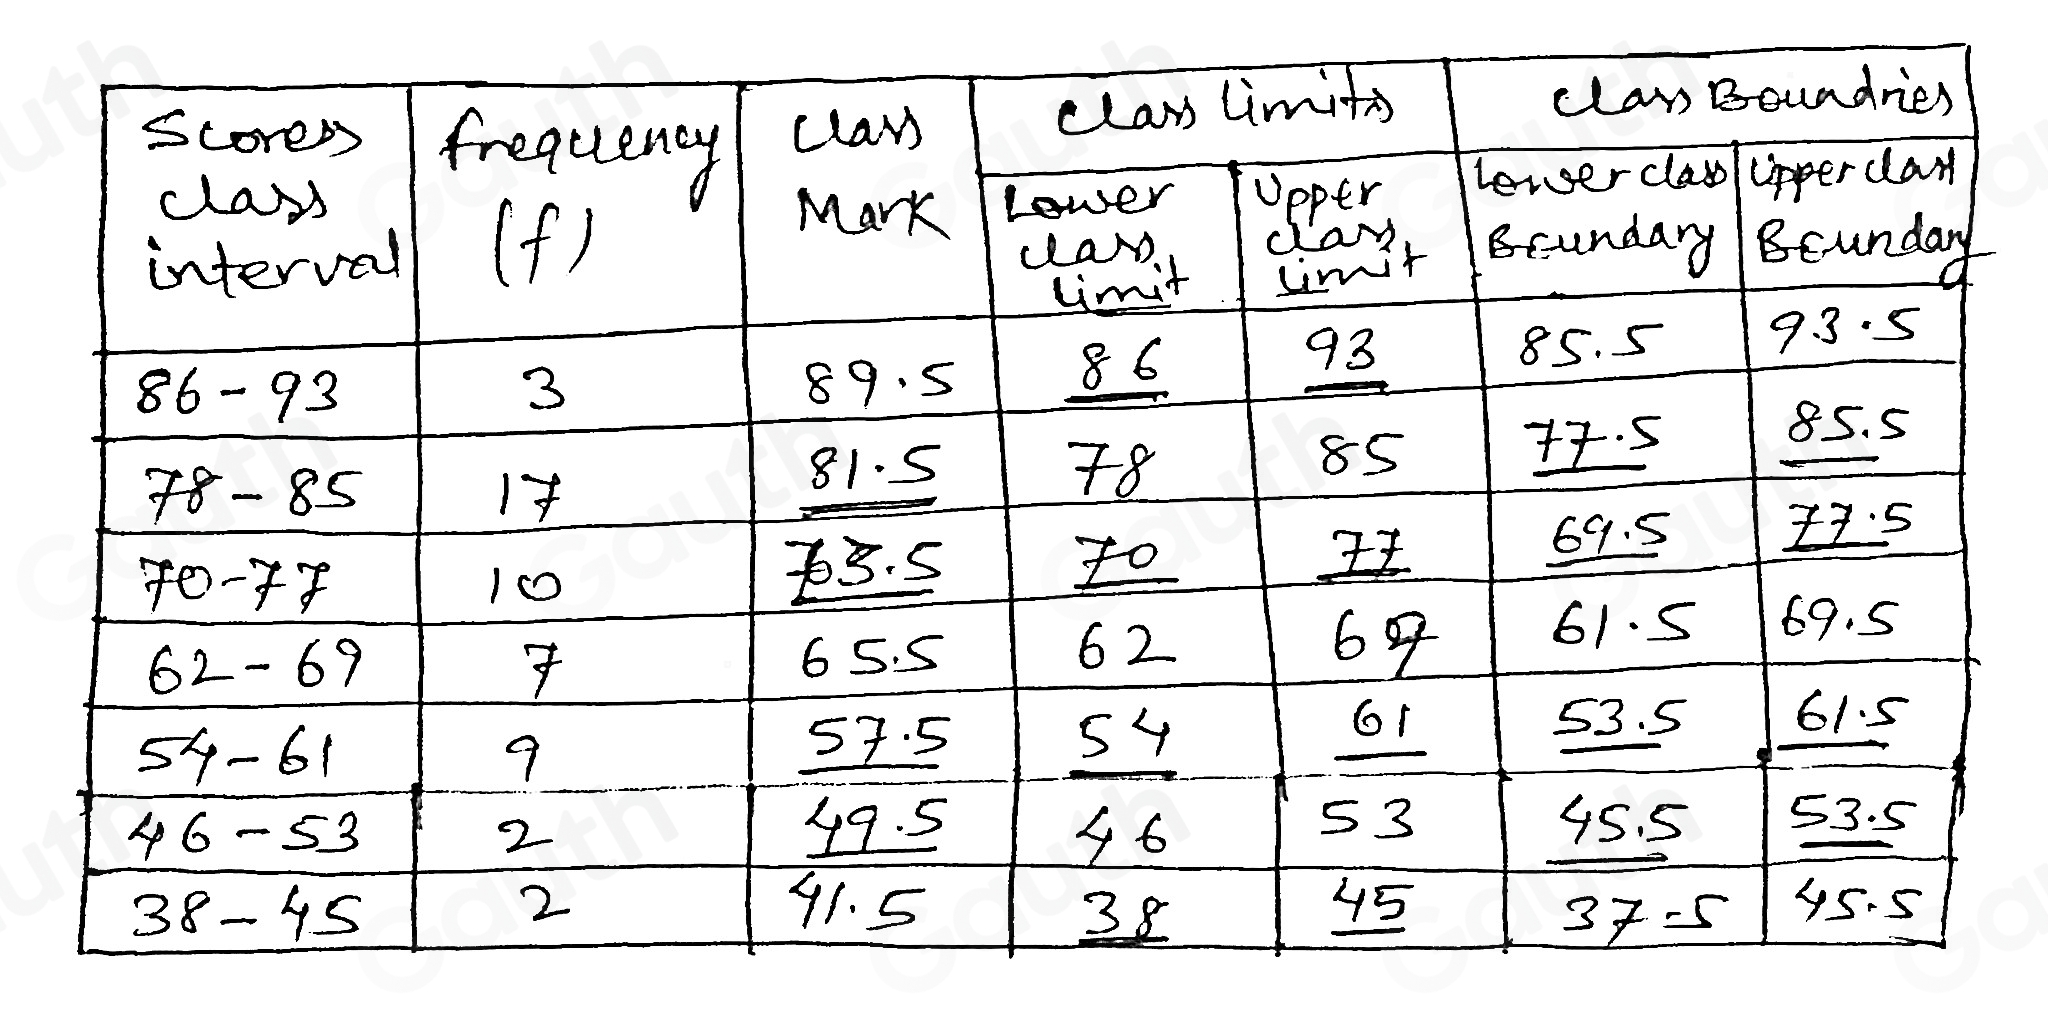 Scores class interval | frequency (f) | Class Mark | Class limits | Class Boundries
Lower class limit | Upper class limit | Lower class Boundary | Upper class Boundary
86-93 | 3 | 89.5 | 86 | 93 | 85.5 | 93.5
78-85 | 17 | 81.5 | 78 | 85 | 77.5 | 85.5
70-77 | 10 | 73.5 | 70 | 77 | 69.5 | 77.5
62-69 | 7 | 65.5 | 62 | 69 | 61.5 | 69.5
54-61 | 9 | 57.5 | 54 | 61 | 53.5 | 61.5
46-53 | 2 | 49.5 | 46 | 53 | 45.5 | 53.5
38-45 | 2 | 41.5 | 38 | 45 | 37.5 | 45.5